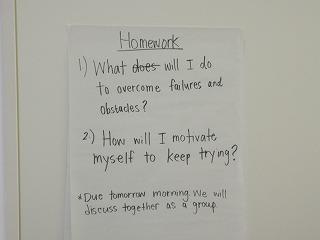 Homework
1) What does will I do
to overcome failures and
obstacles?
2.) How will I motivate
myself to keep trying?
*Due tomorrow morning. We will
discuss together as a group.